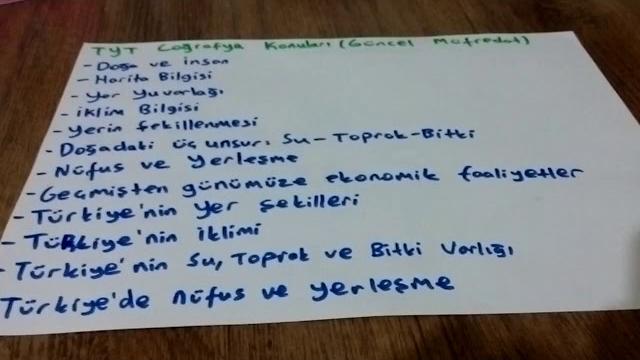 TYT Coğrafya Konuları (Güncel Müfredat)
- Doğa ve insan
- Harita Bilgisi
- Yer Yuvarlağı
- iklim Bilgisi
- Yerin Şekillenmesi
- Doğadaki üç unsur: Su-Toprak-Bitki
- Nüfus ve Yerleşme
- Geçmişten günümüze ekonomik faaliyetler
- Türkiye'nin yer şekilleri
- Türkiye'nin iklimi
- Türkiye'nin Su, Toprak ve Bitki Varlığı
Türkiye'de nüfus ve yerleşme